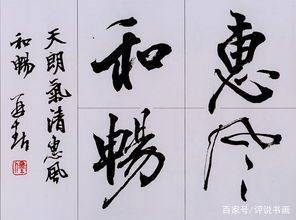 惠风
和暢
天朗氣清惠風
和暢
百家号/评说书画